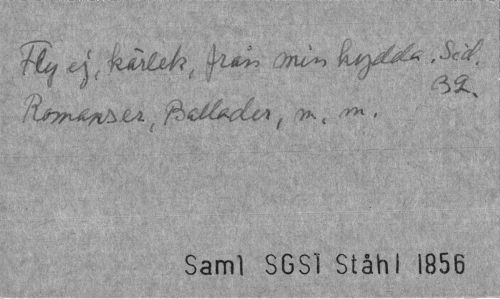 Fly ej, kärlek, från min hydda. Sid. 32.
Romanser, Ballader, m. m.
Saml SGS1 Ståhl 1856